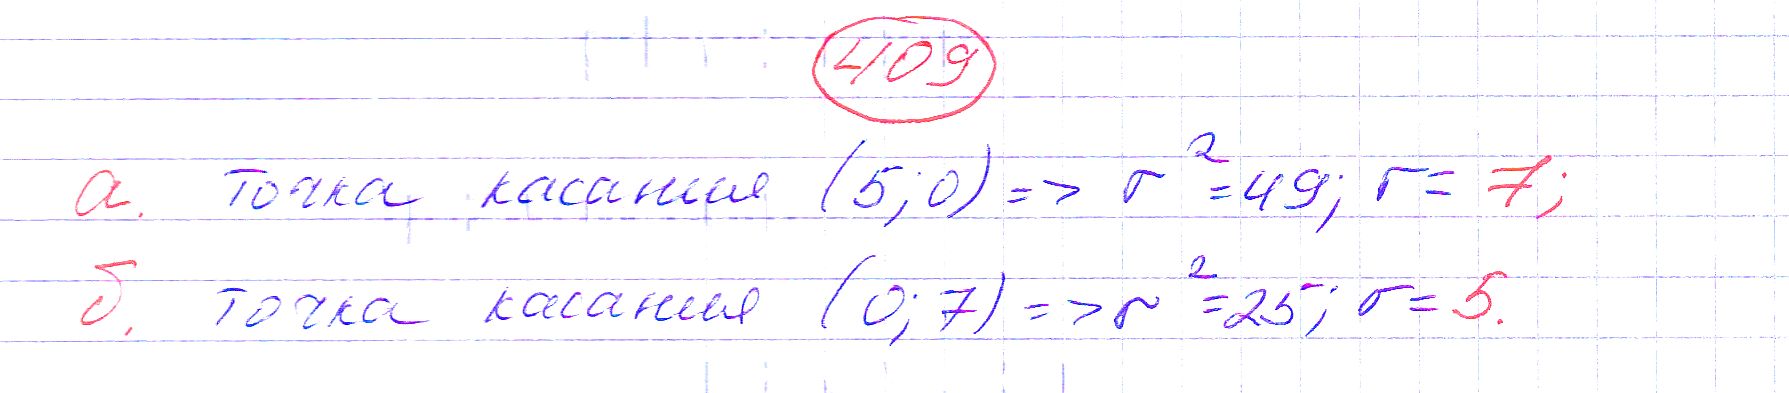 409
а. точка касания (5;0) => r²=49; r= 7;
б. точка касания (0;7) => r²=25; r= 5.